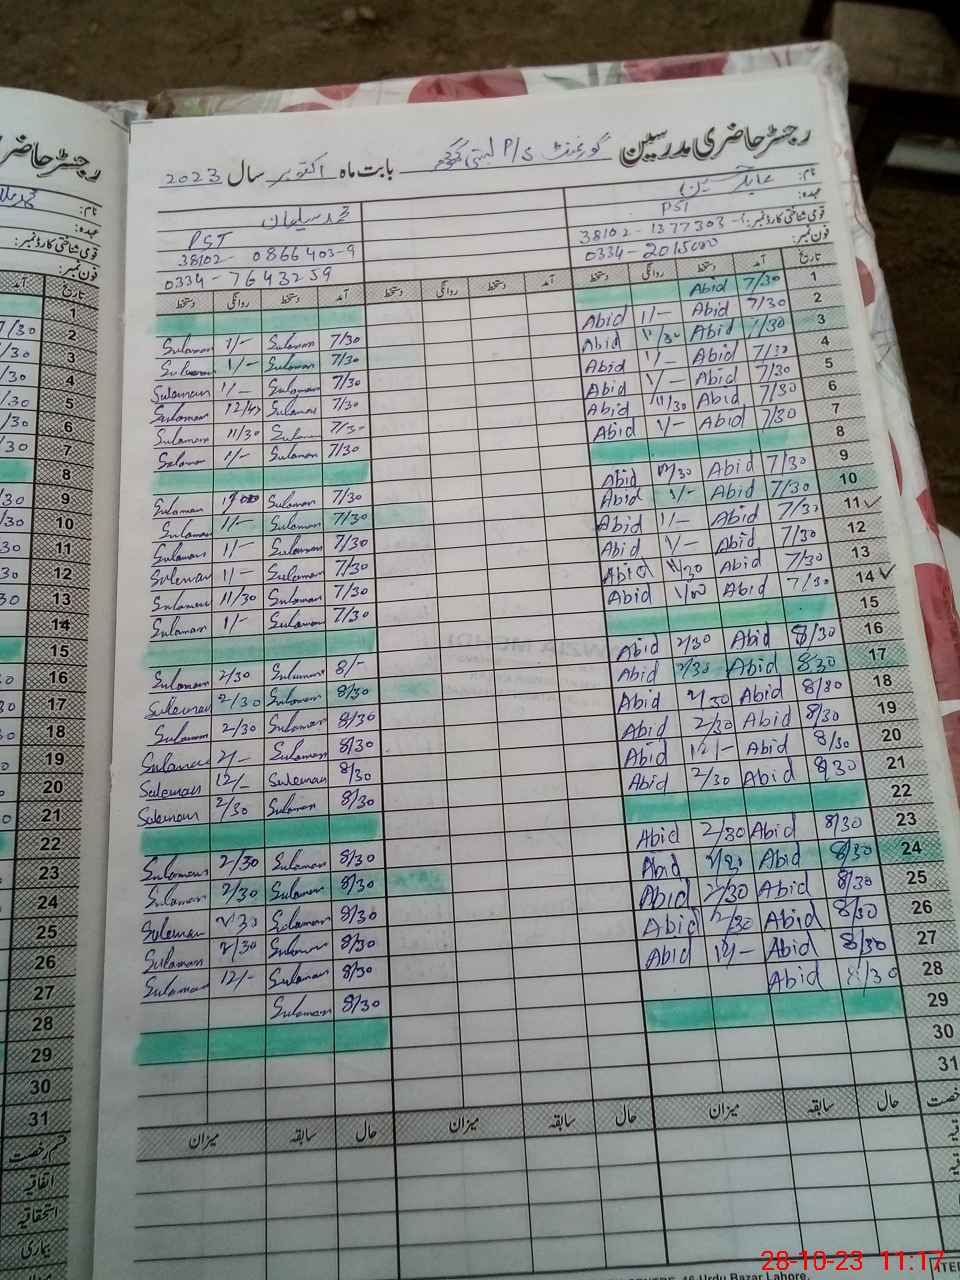 رجسٹر حاضری مدرسین گورنمنٹ P/S بستی بابت ماہ اکتوبر سال 2023
نام:
محمد سلیمان
عہدہ:
PST
PST
قومی شناختی کارڈ نمبر:
38102-1377303-
38102- 0866403-9
فون نمبر:
0334-2015000
0334-7643259
تاریخ آمد دستخط روانگی دستخط آمد دستخط روانگی دستخط آمد دستخط روانگی دستخط
1 7/30 Abid
2 7/30 Abid 1/- Abid 7/30 Sulaman 1/- Sulaman
3 Abid 11/30 Abid 7/30 Sulaman 1/- Sulaman
4 7/30 Abid 1/- Abid 7/30 Sulaman 1/- Sulaman
5 7/30 Abid 1/- Abid 7/30 Sulaman 12/ Sulaman
6 7/30 Abid 11/30 Abid 7/30 11/30 Sulaman
7 7/30 Abid 1/- Abid 7/30 Sulaman 1/- Sulaman
8
9 7/30 Abid Abid 7/30 Sulaman Sulaman
10 7/30 Abid 1/- Abid 7/30 Sulaman 1/- Sulaman
11 7/30 Abid 1/- Abid 7/30 Sulaman 1/- Sulaman
12 7/30 Abid 1/- Abid 7/30 Sulaman 1/- Suleman
13 7/30 Abid 11/30 Abid 7/30 Sulaman 11/30 Sulaman
14 7/30 Abid 1/00 Abid 7/30 Sulaman 1/- Sulaman
15
16 8/30 Abid 2/30 Abid 8/- Sulaman 2/30 Sulaman
17 8/30 Abid 2/30 Abid 8/30 Sulaman 2/30 Suleman
18 8/30 Abid 2/30 Abid 8/30 Sulaman 2/30 Sulaman
19 8/30 Abid 2/30 Abid 8/30 Sulaman 2/- Sulaman
20 8/30 Abid 12/- Abid 8/30 Suleman 12/- Suleman
21 8/30 Abid 2/30 Abid 8/30 Sulaman 2/30 Suleman
22
23 8/30 Abid 2/30 Abid 8/30 Sulaman 2/30 Sulaman
24 8/30 Abid 2/30 Abid 8/30 Sulaman 2/30 Sulaman
25 8/30 Abid 2/30 Abid 8/30 Sulaman 2/30 Suleman
26 8/30 Abid 2/30 Abid 8/30 Sulaman 2/30 Sulaman
27 8/30 Abid 12/- Abid 8/30 Sulaman 12/- Sulaman
28 Abid 8/30 Sulaman
29
30
31
حال سابقہ میزان حال سابقہ میزان حال سابقہ میزان
رجسٹر حاضری
نام:
عہدہ:
قومی شناختی کارڈ نمبر:
فون نمبر:
تاریخ آمد
1
2 7/30
3 /30
4 /30
5 /30
6 /30
7 /30
8
9 /30
10 /30
11
12
13
14
15
16
17
18
19
20
21
22
23
24
25
26
27
28
29
30
31
قسم رخصت
اتفاقیہ
استحقاقیہ
بیماری
16-Urdu Bazar Lahore.
28-10-23 11:17